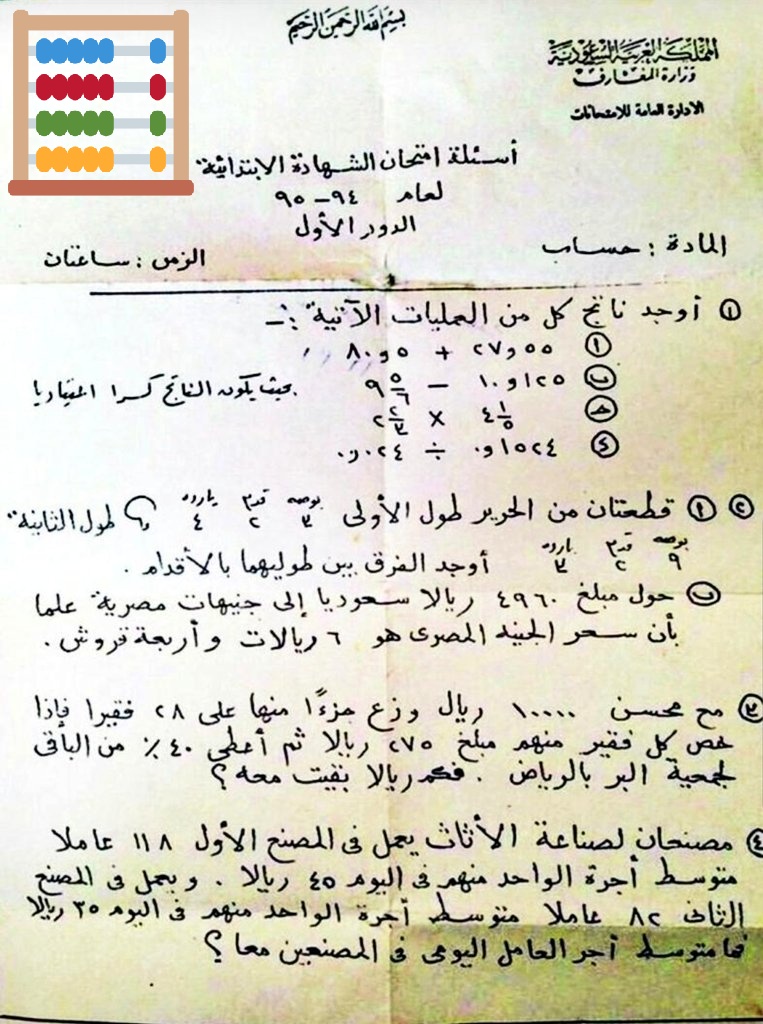 بسم الله الرحمن الرحيم
المملكة العربية السعودية
وزارة المعارف
الادارة العامة للامتحانات
أسئلة امتحان الشهادة الابتدائية
لعام ٩٤ – ٩٥
الدور الأول
المادة : حساب الزمن : ساعتان
١ أوجد ناتج كل من العمليات الآتية :-
أ ٥٥و٢٧ + ٥و٨٠
ب ١٢٥و١٠ – ٩ ٥/٦ بحيث يكون الناتج كسرا اعتياديا
ج ٤ ١/٥ × ٢ ٢/٣
د ١٥٢٤و٠ ÷ ٠٢٤و٠
٢ أ قطعتان من الحرير طول الأولى ٣ بوصه ٢ قدم ٤ يارده و طول الثانية
٩ بوصه ٢ قدم ٣ يارده أوجد الفرق بين طوليهما بالأقدام .
ب حول مبلغ ٤٩٦٠ ريالا سعوديا إلى جنيهات مصرية علما
بأن سعر الجنيه المصرى هو ٦ ريالات وأربعة قروش .
٣ مع محسن ١٠٠٠٠ ريال وزع جزءًا منها على ٢٨ فقيرا فإذا
خص كل فقير منهم مبلغ ٢٧٥ ريالا ثم أعطى ٤٠ ٪ من الباقى
لجمعية البر بالرياض . فكم ريالا بقيت معه ؟
٤ مصنعان لصناعة الأثاث يعمل فى المصنع الأول ١١٨ عاملا
متوسط أجرة الواحد منهم فى اليوم ٤٥ ريالا . ويعمل فى المصنع
الثانى ٨٢ عاملا متوسط أجرة الواحد منهم فى اليوم ٣٥ ريالا
فما متوسط أجر العامل اليومى فى المصنعين معا ؟